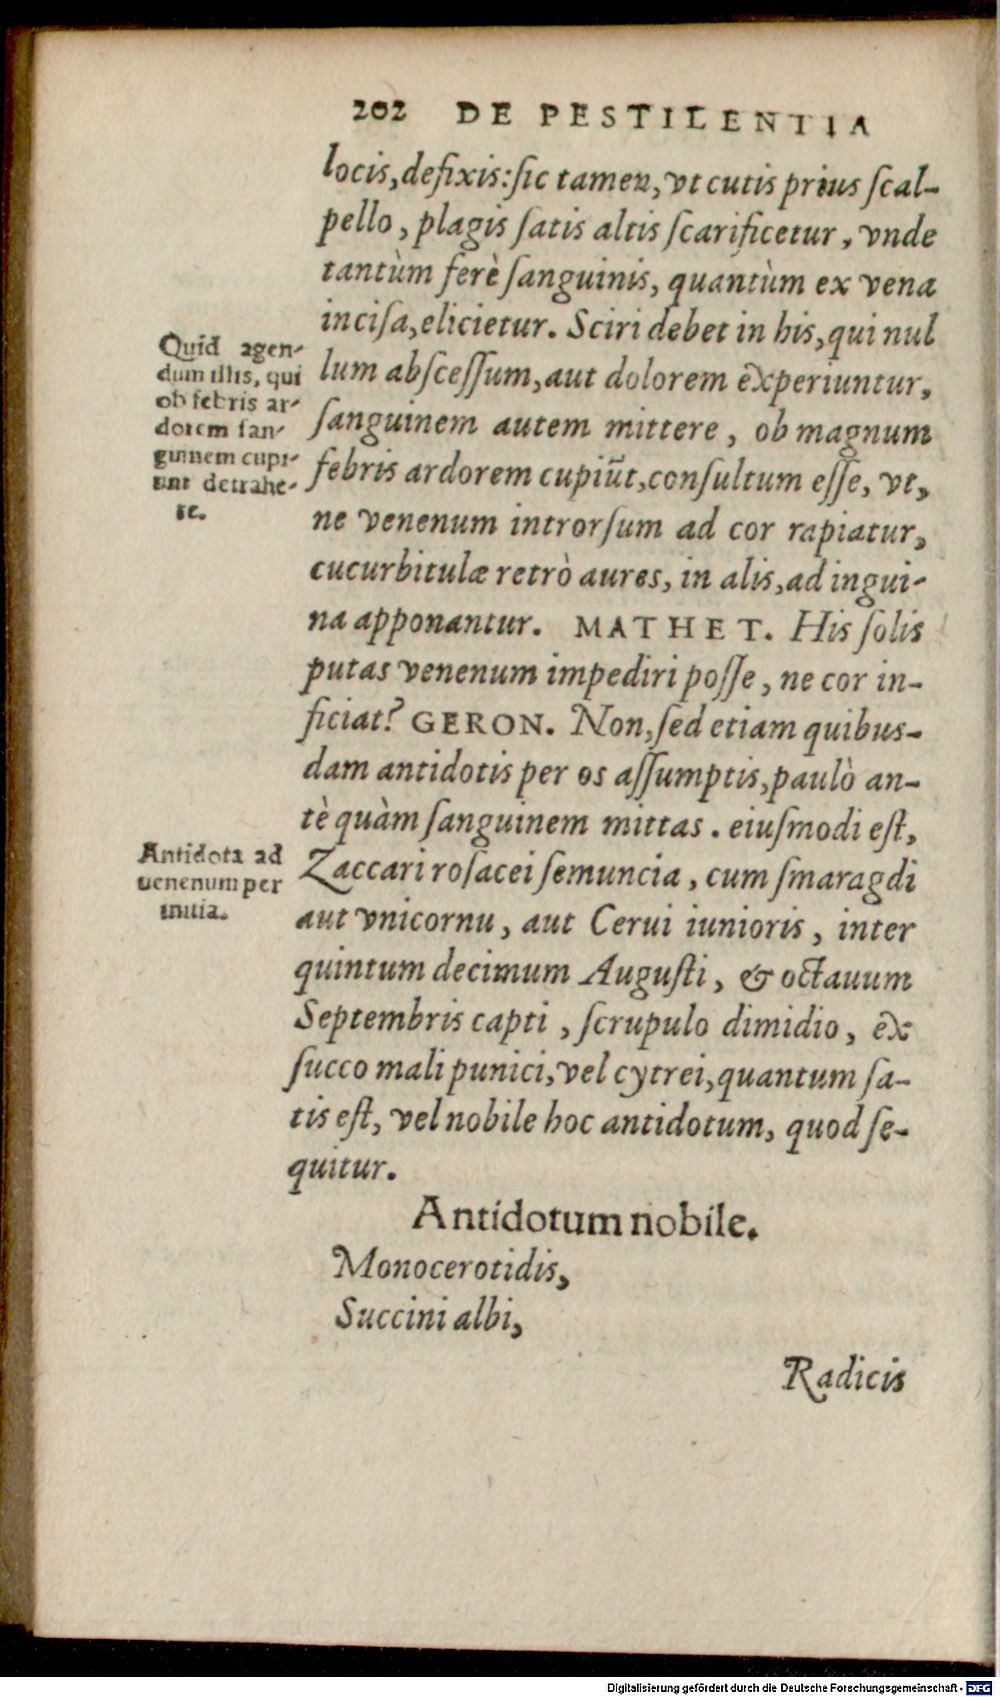 202 DE PESTILENTIA
locis, defixis: ſic tamen, vt cutis prius ſcal-
pello, plagis ſatis altis ſcarificetur, vnde
tantùm ferè ſanguinis, quantùm ex vena
inciſa, elicietur. Sciri debet in his, qui nul
lum abſceſſum, aut dolorem experiuntur,
ſanguinem autem mittere, ob magnum
febris ardorem cupiūt, conſultum eſſe, vt,
ne venenum introrſum ad cor rapiatur,
cucurbitulæ retrò aures, in alis, ad ingui-
na apponantur. MATHET. His ſolis
putas venenum impediri poſſe, ne cor in-
ficiat? GERON. Non, ſed etiam quibus-
dam antidotis per os aſſumptis, paulò an-
tè quàm ſanguinem mittas. eiuſmodi eſt,
Zaccari roſacei ſemuncia, cum ſmaragdi
aut vnicornu, aut Cerui iunioris, inter
quintum decimum Auguſti, & octauum
Septembris capti, ſcrupulo dimidio, ex
ſucco mali punici, vel cytrei, quantum ſa-
tis eſt, vel nobile hoc antidotum, quod ſe-
quitur.
Antidotum nobile.
Monocerotidis,
Succini albi,
Radicis
Quid agen-
dum illis, qui
ob febris ar-
dorem ſan-
guinem cupi-
unt detrahe-
re.
Antidota ad
uenenum per
initia.
Digitalisierung gefördert durch die Deutsche Forschungsgemeinschaft - DFG